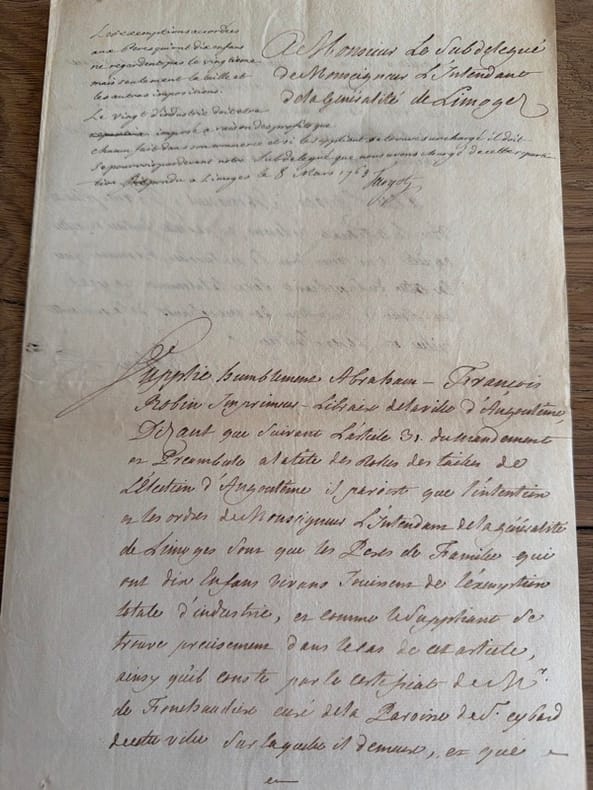 Les exemptions accordées
aux Peres qui ont dix enfans
ne regardent pas le vingtieme
mais seulement la taille et
les autres impositions.
Le vingt. d'industrie doit etre
imposé a raison des profits que
chacun fait dans son commerce et si le suppliant se trouve surchargé il doit
se pourvoir pardevant notre Subdelegué que nous avons chargé de cette reparti-
tion a Limoges le 8 Mars 1769
A Monsieur Le Subdelegué
de Monseigneur L'Intendant
de la Génèralité de Limoges
Supplie humblement Abraham-François
Robin Imprimeur-Libraire de la ville d'Angoulême,
Disant que suivant L'article 31. du mandement
et Preambule a la tête des Rolles des tailles de
L'Election d'Angoulême il paroist que l'intention
et les ordres de Monseigneur L'Intendant de la généralité
de Limoges sont que les Peres de Famille qui
ont dix Enfans vivans Jouissent de l'éxemption
totale d'industrie, et comme le Suppliant se
trouve précisement dans le cas de cet article,
ainsy qu'il conste par le certifiat de Mr.
de curé de la Paroisse de St. cybard
de cette ville sur laquelle il demeure, et que